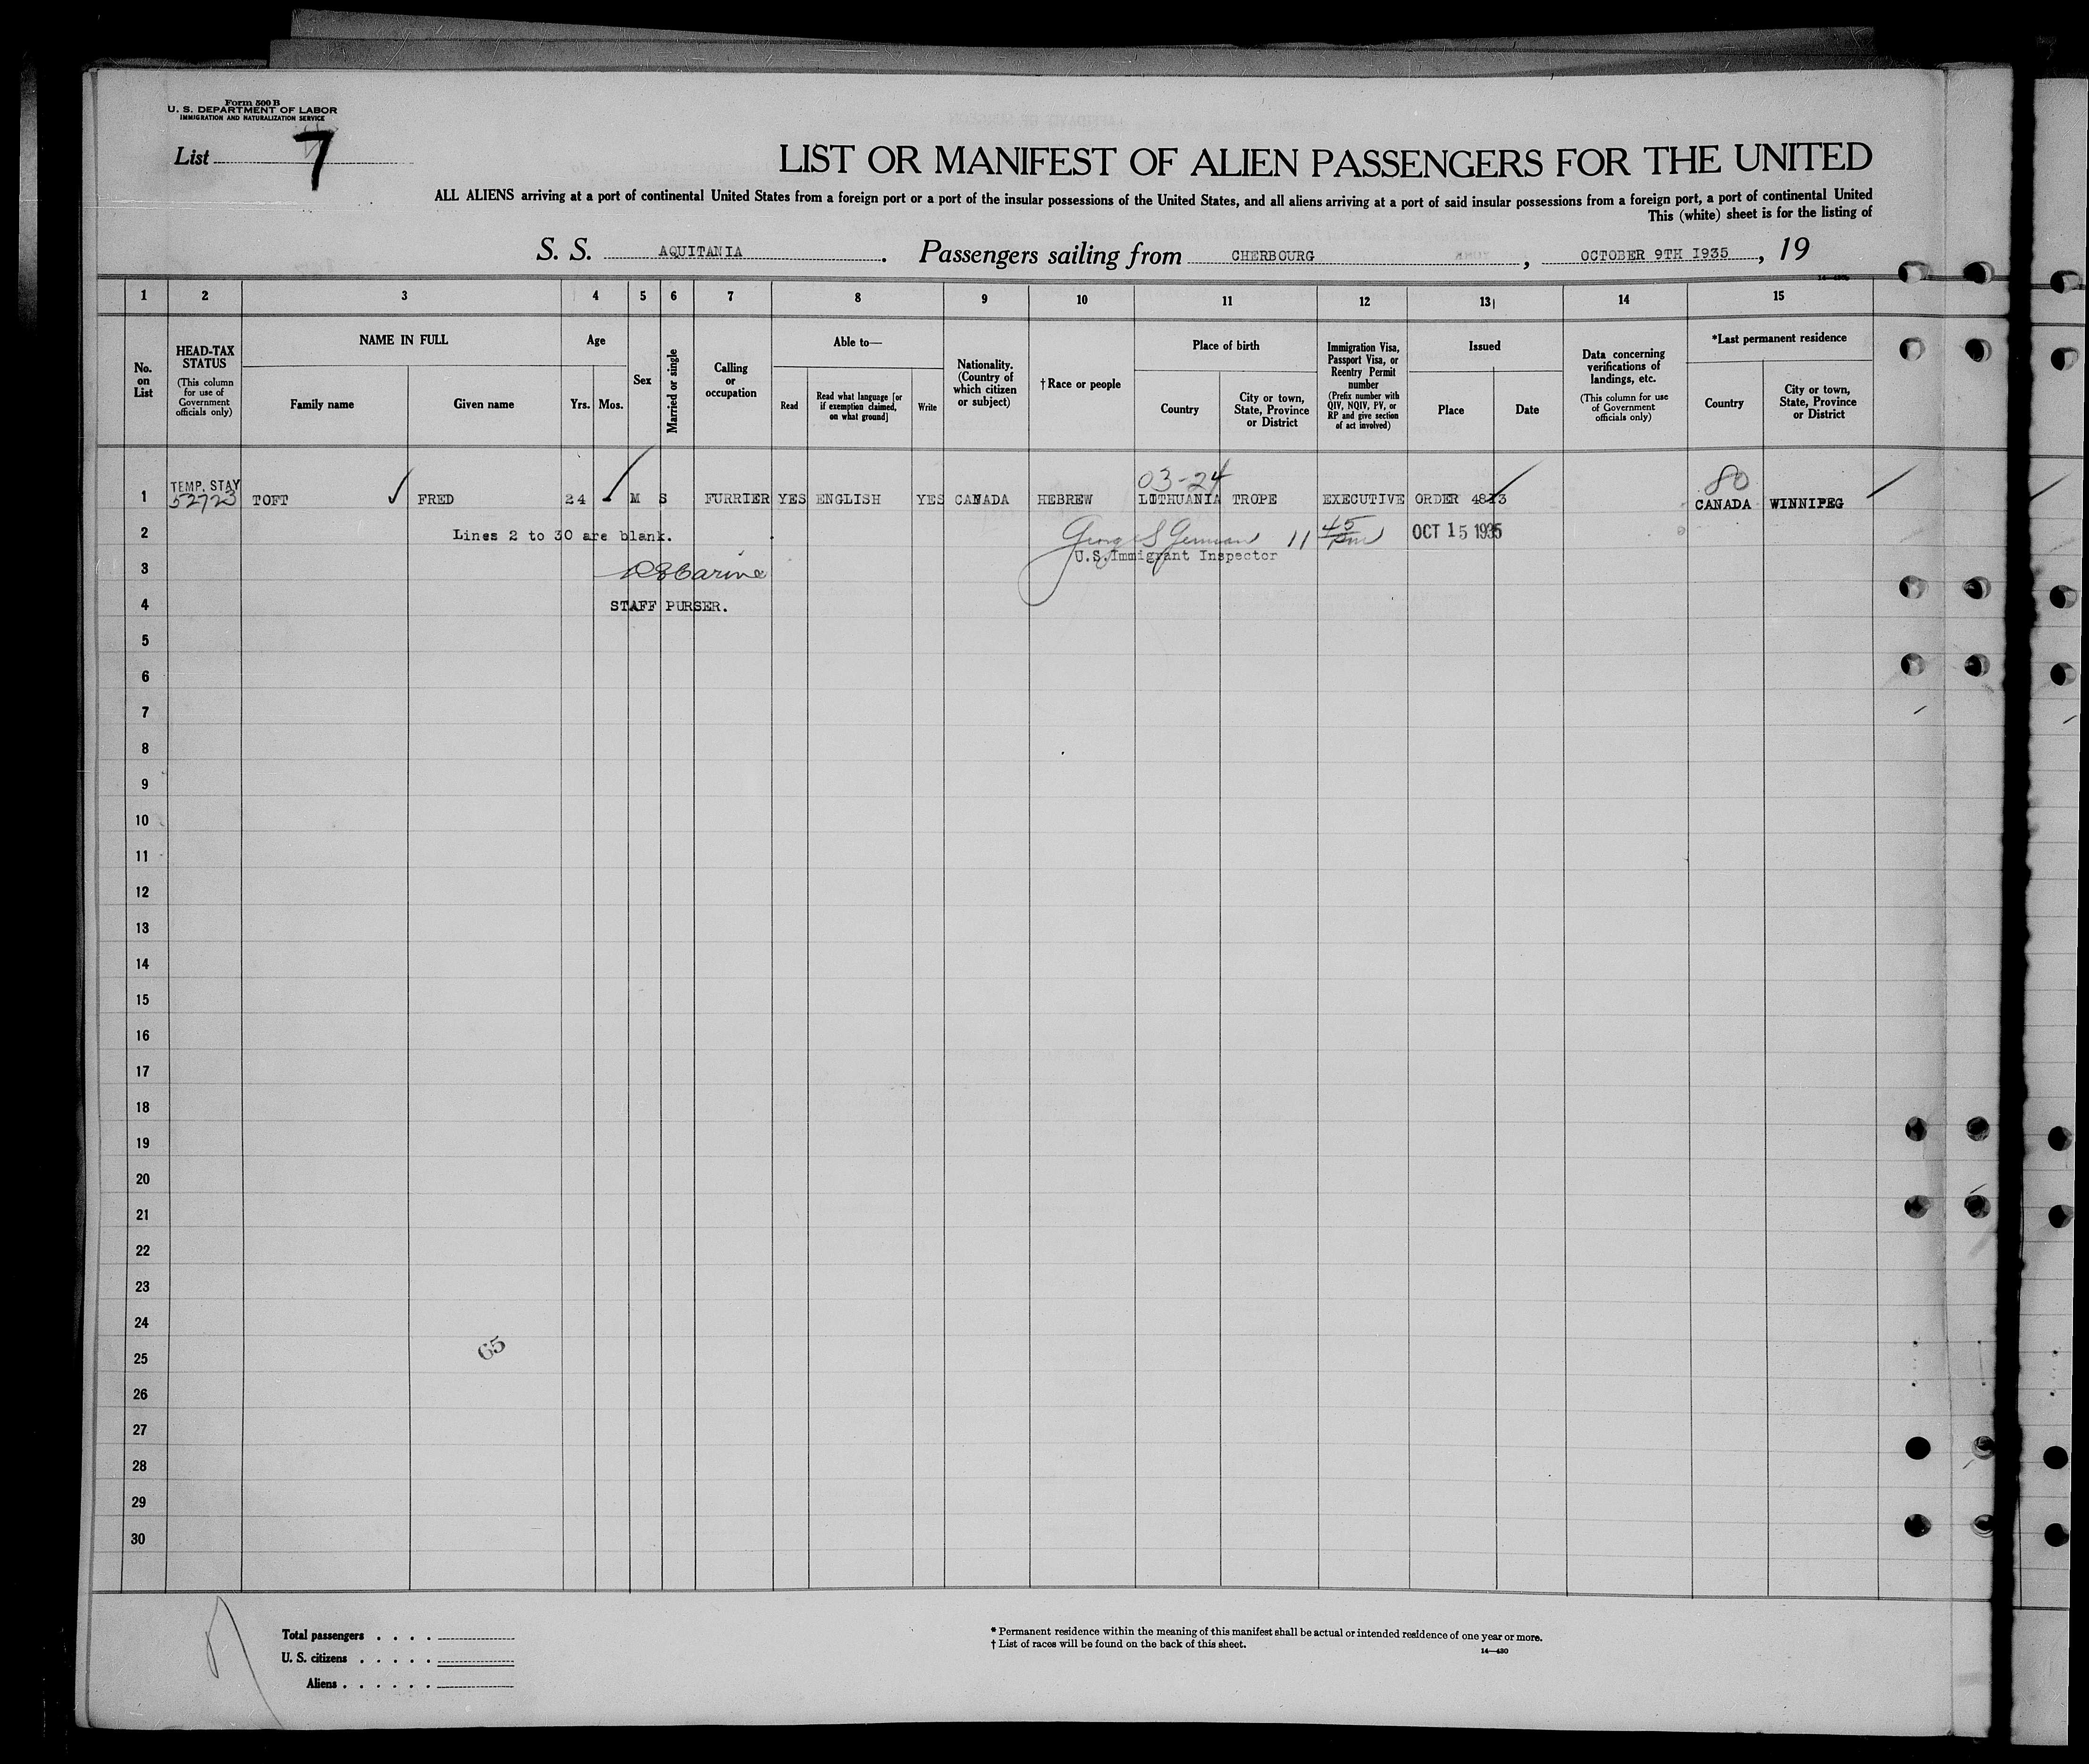 Form 500 B
U. S. DEPARTMENT OF LABOR
IMMIGRATION AND NATURALIZATION SERVICE
List 7
LIST OR MANIFEST OF ALIEN PASSENGERS FOR THE UNITED
ALL ALIENS arriving at a port of continental United States from a foreign port or a port of the insular possessions of the United States, and all aliens arriving at a port of said insular possessions from a foreign port, a port of continental United
This (white) sheet is for the listing of
S. S. AQUITANIA. Passengers sailing from CHERBOURG, OCTOBER 9TH 1935, 19
1 2 3 4 5 6 7 8 9 10 11 12 13 14 15
No. on List
HEAD-TAX STATUS
(This column for use of Government officials only)
NAME IN FULL
Family name
Given name
Age
Yrs. Mos.
Sex
Married or single
Calling or occupation
Able to—
Read
Read what language [or if exemption claimed, on what ground]
Write
Nationality. (Country of which citizen or subject)
† Race or people
Place of birth
Country
City or town, State, Province or District
Immigration Visa, Passport Visa, or Reentry Permit number
(Prefix number with QIV, NQIV, PV, or RP and give section of act involved)
Issued
Place
Date
Data concerning verifications of landings, etc.
(This column for use of Government officials only)
*Last permanent residence
Country
City or town, State, Province or District
03-24 80
TEMP. STAY
1 52723 TOFT FRED 24 M S FURRIER YES ENGLISH YES CANADA HEBREW LITHUANIA TROPE EXECUTIVE ORDER 4813 CANADA WINNIPEG
2 Lines 2 to 30 are blank. 11 45 pm OCT 15 1935
U.S. Immigrant Inspector
3
4 STAFF PURSER.
5
6
7
8
9
10
11
12
13
14
15
16
17
18
19
20
21
22
23
24
25 65
26
27
28
29
30
Total passengers . . . .
U. S. citizens . . . . .
Aliens . . . . . .
* Permanent residence within the meaning of this manifest shall be actual or intended residence of one year or more.
† List of races will be found on the back of this sheet.
14—430